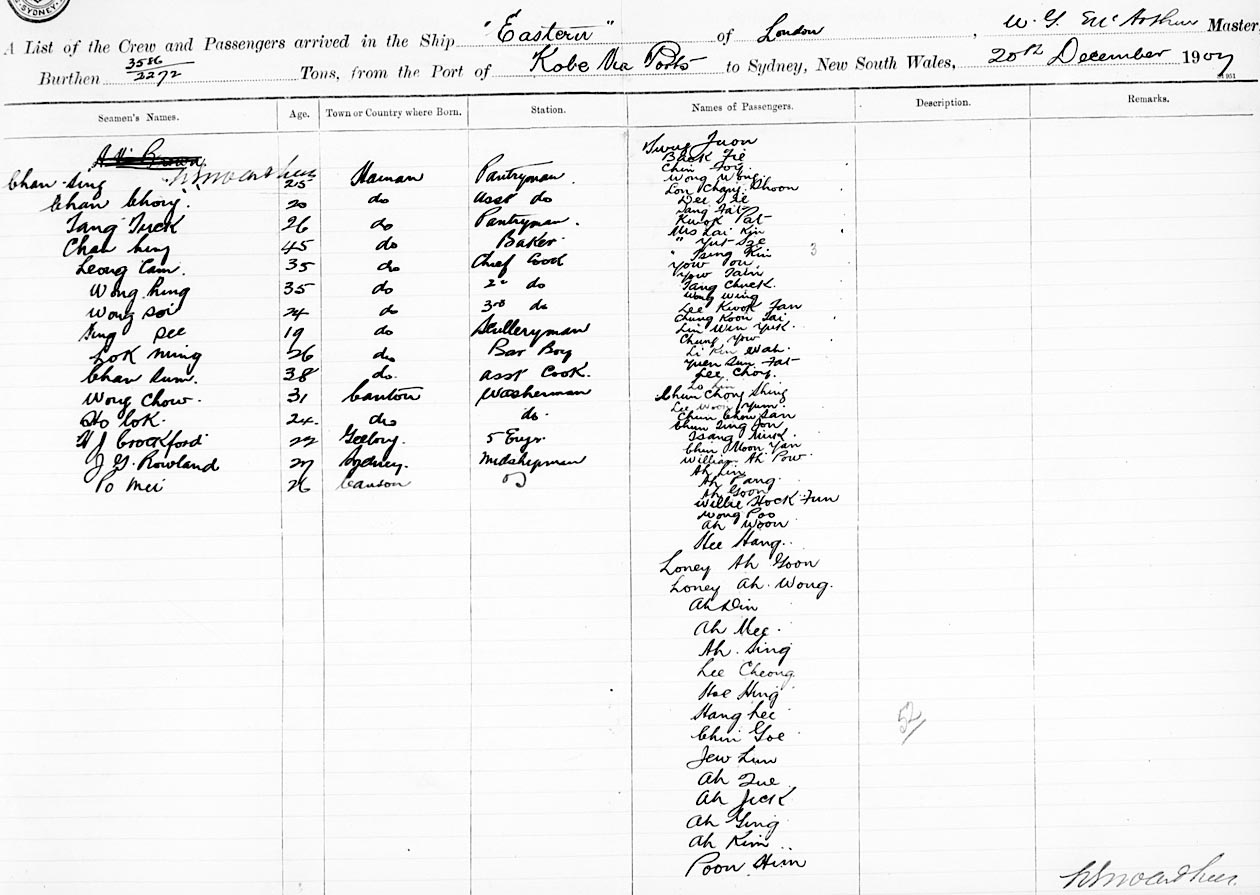 SYDNEY
A List of the Crew and Passengers arrived in the Ship "Eastern" of London, W. G. McArthur Master,
Burthen 3586/2272 Tons, from the Port of Kobe Via Ports to Sydney, New South Wales, 20th December 1907
Seamen's Names. Age. Town or Country where Born. Station. Names of Passengers. Description. Remarks.
Brown
Chan Sing 25 Hainan Pantryman
Chan Chong 20 do asst do
Tang Tuck 26 do Pantryman
Chan hing 45 do Baker
Leong Cam. 35 do Chief Cook
Wong hing 35 do 2nd do
Wong Soi 24 do 3rd do
Ting See 19 do Sculleryman
Lok ming 26 do Bar Boy
Chan Sum. 38 do asst Cook.
Wong Chow. 31 Canton Washerman
Ho lok. 24. do do.
H J Crockford 22 Geelong. 5 Engr.
J G. Rowland 27 Sydney. Midshipman
Po Mei 26 Canton
Back
Chin Foy
Wong Wong
Lon Chong
Tang Fat
Kwok Pat
Mrs Lai Kin
" Yut See
" Tsing Kin
Yow
Yow
Tang Chuck.
Wong Wing
Lee Kwok Tan
Chung Koon Tai
Lui Win Yuk.
Chung Yow
Li Kin Wah.
Yuen Sun Fat
Lee Choy.
Chun Chong Shing
Lee Woon Yum.
Chun Chow San
Chun Ting Jon
Tsang Muk.
Chin Moon Yan
William Ah Pow.
Ah Lin
Ah Pang.
Ah Goon
Willie Hock Fun
Wong Poo
Ah Woon
Hee Hang.
Loney Ah Goon
Loney Ah. Wong.
Ah Din
Ah Mee.
Ah. Sing
Lee Cheong
Hoe Hing
Hang hee
Chin Goe
Jew Lun
Ah Tue
Ah Jick
Ah Ging
Ah Kim
Poon Him
3
52